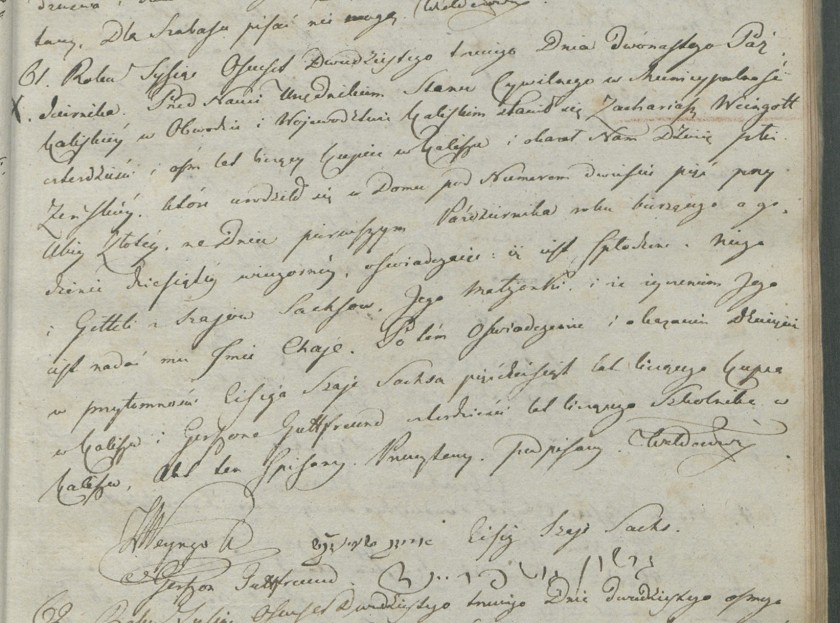 tury, Dla Szabasu pisać nie mogę.
61. Roku Tysiąc Osmset Dwudziestego trzeciego Dnia Dwónastego Paź-
dziernika. Przed Nami Urzędnikiem Stanu Cywilnego w Municypalności
Kaliskiéy w Obwodzie i Województwie Kaliskim stawił się Zachariasz Weingott
czterdzieści, ośm lat liczący Kupiec w Kaliszu i okazał Nam Dziecię płci
Żeńskiéy. które urodziło się w Domu pod Numerem dwieście pięć przy
Ulicy Złotéy, na Dniu pierwszym Października roku bieżącego o go-
dzinie dziesiątéy wieczornéy, oświadczając: iż jest spłodzone z niego
i Gitteli z Szajów Sachsow, Jego Małżonki i że życzeniem Jego
jest nadać mu Imie Chaje. Po tém Oświadczeniu i okazaniu Dziecięcia
w przytomności Eisiga Szaje Sachsa pięćdziesiąt lat liczącego Kupca
w Kaliszu i Gerszona Guttfreund czterdzieści lat liczącego Szkolnika w
Kaliszu, Akt ten Spisany. Przeczytany. podpisany.
Eisig Szaje Sachs.
Gerszon Guttfreund.
62. Roku Tysiąc Osmset Dwudziestego trzeciego Dnia dwudziestego osmego